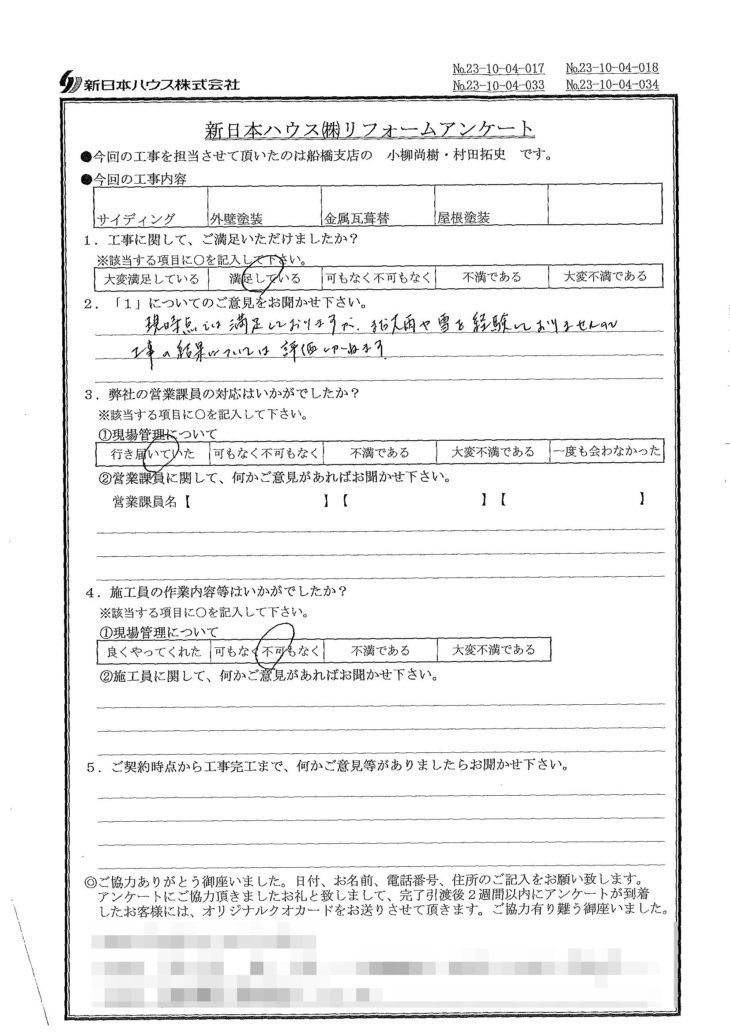 新日本ハウス株式会社
№23-10-04-017 №23-10-04-018
№23-10-04-033 №23-10-04-034
新日本ハウス㈱リフォームアンケート
●今回の工事を担当させて頂いたのは船橋支店の 小柳尚樹・村田拓史 です。
●今回の工事内容
サイディング 外壁塗装 金属瓦葺替 屋根塗装
1．工事に関して、ご満足いただけましたか？
※該当する項目に○を記入して下さい。
大変満足している 満足している 可もなく不可もなく 不満である 大変不満である
2．「1」についてのご意見をお聞かせ下さい。
現時点では満足しておりますが、まだ大雨や雪を経験しておりませんので
工事の結果については評価しかねます
3．弊社の営業課員の対応はいかがでしたか？
※該当する項目に○を記入して下さい。
①現場管理について
行き届いていた 可もなく不可もなく 不満である 大変不満である 一度も会わなかった
②営業課員に関して、何かご意見があればお聞かせ下さい。
営業課員名【 】【 】【 】
4．施工員の作業内容等はいかがでしたか？
※該当する項目に○を記入して下さい。
①現場管理について
良くやってくれた 可もなく不可もなく 不満である 大変不満である
②施工員に関して、何かご意見があればお聞かせ下さい。
5．ご契約時点から工事完工まで、何かご意見等がありましたらお聞かせ下さい。
◎ご協力ありがとう御座いました。日付、お名前、電話番号、住所のご記入をお願い致します。
アンケートにご協力頂きましたお礼と致しまして、完了引渡後２週間以内にアンケートが到着
したお客様には、オリジナルクオカードをお送りさせて頂きます。ご協力有り難う御座いました。